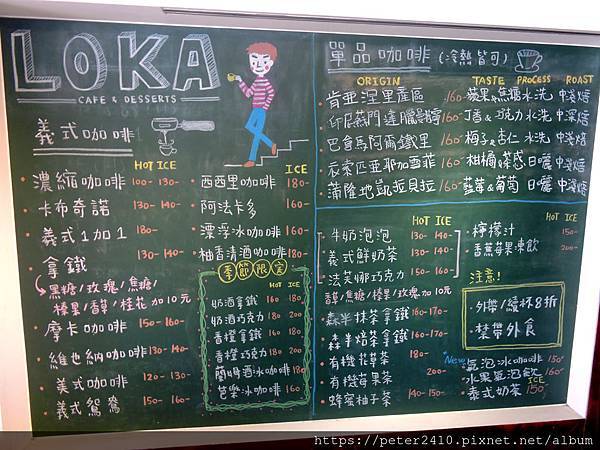 LOKA
CAFE & DESSERTS
義式咖啡
HOT ICE
濃縮咖啡 100- 130-
卡布奇諾 130- 140-
義式1加1 180-
拿鐵 130- 140-
黑糖/玫瑰/焦糖/
榛果/香草/桂花 加10元
摩卡咖啡 150- 160-
維也納咖啡 130- 140-
美式咖啡 120- 130-
義式鴛鴦 150- 160-
ICE
西西里咖啡 180-
阿法卡多 160-
漂浮冰咖啡 160-
柚香清酒咖啡 180-
季節限定
HOT ICE
奶酒拿鐵 160 180
奶酒巧克力 180 200
香橙拿鐵 160 180
香橙巧克力 180 200
蘭姆酒冰咖啡 180
芭樂冰咖啡 160
單品咖啡 (冷熱皆可)
ORIGIN TASTE PROCESS ROAST
肯亞涅里產區 160- 蘋果焦糖 水洗 中淺焙
160- 水洗 中深焙
巴拿馬阿爾鐵里 160- 梅子&杏仁 水洗 中淺焙
衣索匹亞耶加雪菲 160- 日曬 中淺焙
蒲隆地凱拉貝拉 160- 日曬 中淺焙
HOT ICE
牛奶泡泡 130- 140-
義式鮮奶茶 130- 140-
法芙娜巧克力 150- 160-
香草/焦糖/榛果/玫瑰 加10元
森半抹茶拿鐵 160- 170-
森半焙茶拿鐵 160- 170-
有機花草茶 180-
有機莓果茶 200-
蜂蜜柚子茶 140- 150-
HOT ICE
檸檬汁 150-
香蕉莓果凍飲 200-
注意!
·外帶/續杯8折
·禁帶外食
New
氣泡冰咖啡 150-
水果氣泡飲 160-
ICE
泰式奶茶 150-
https://peter2410.pixnet.net/album